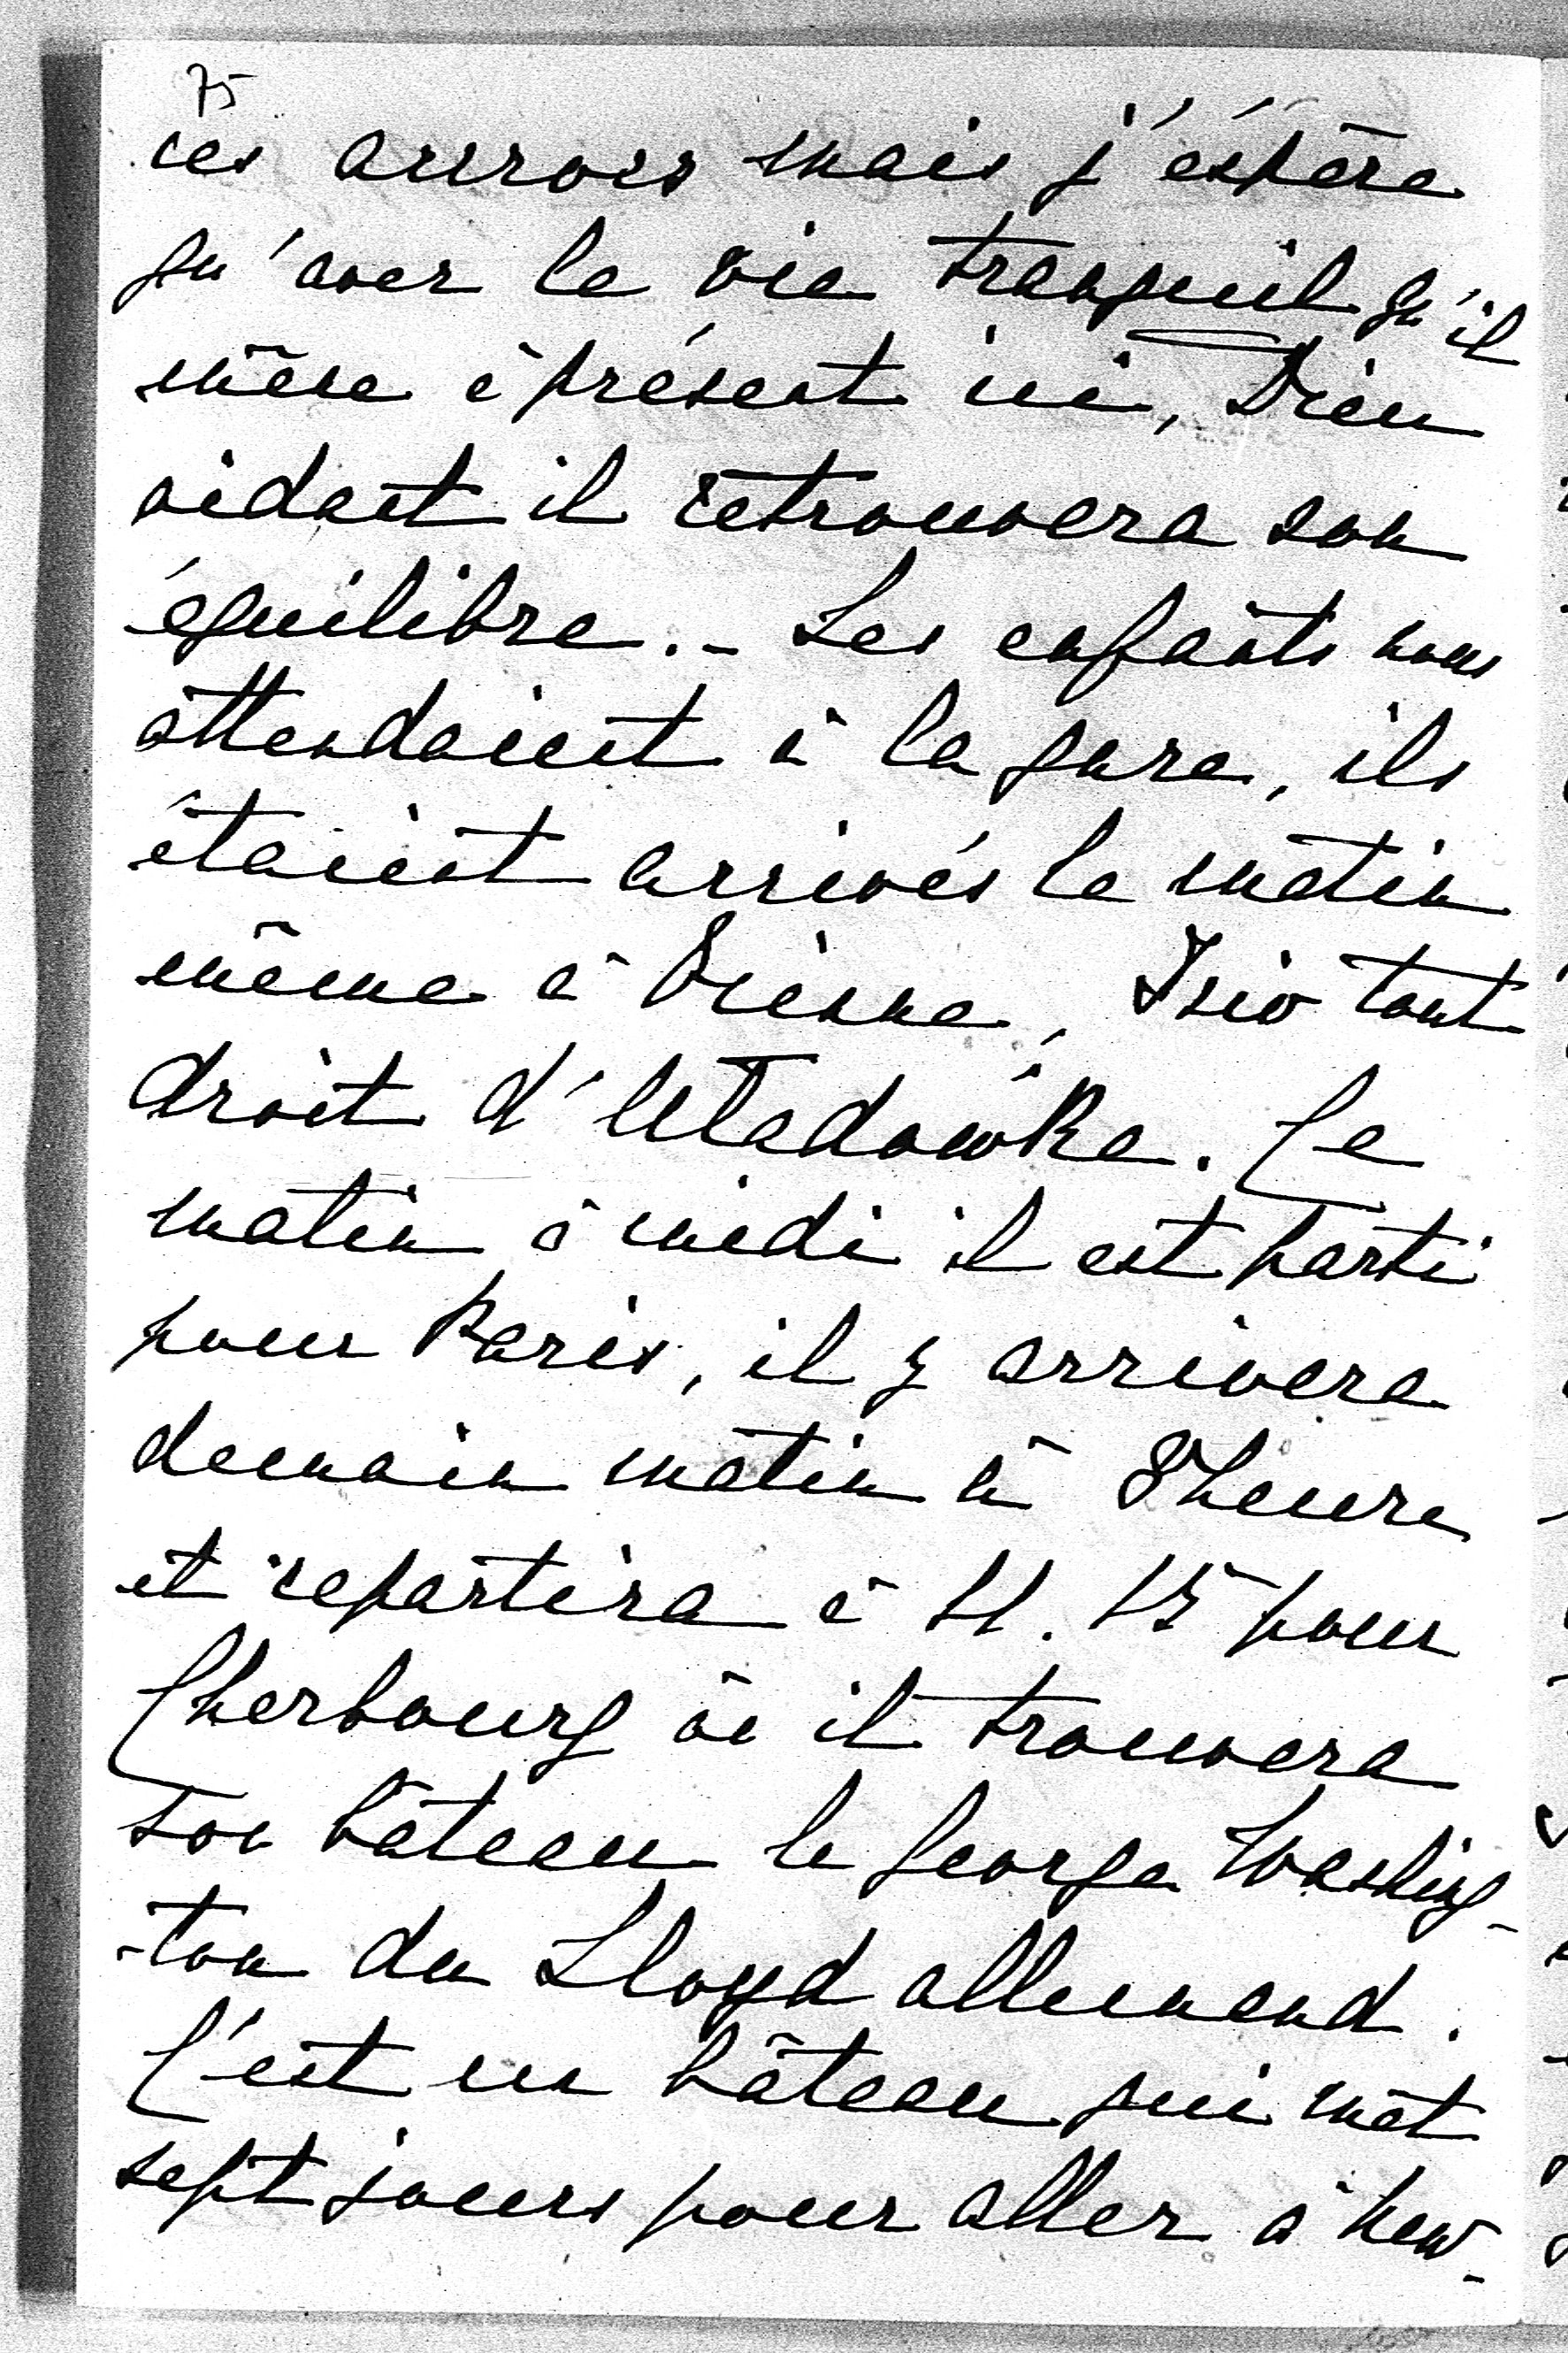 75
mais j'éspère
qu'avec la vie tranquil qu'il
mène à présent ici, Dieu
aidant il retrouvera son
équilibre. - Les enfants nous
attendaient à la gare, ils
étaient arrivés le matin
même à Vienne, Isio tout
droit d'Uładówka. Ce
matin à midi il est parti
pour Paris, il y arrivera
demain matin à 8 heure
et repartira à 11.15 pour
Cherbourg où il trouvera
son bâteau le George Washing-
-ton du Lloyd allemand.
C'est un bâteau qui met
sept jours pour aller à New-